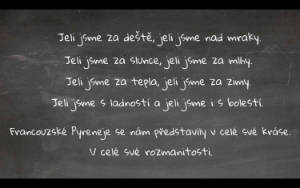 Jeli jsme za deště, jeli jsme nad mraky.
Jeli jsme za slunce, jeli jsme za mlhy.
Jeli jsme za tepla, jeli jsme za zimy
Jeli jsme s ladností a jeli jsme i s bolestí.
Francouzské Pyreneje se nám představily v celé své kráse.
V celé své rozmanitosti.